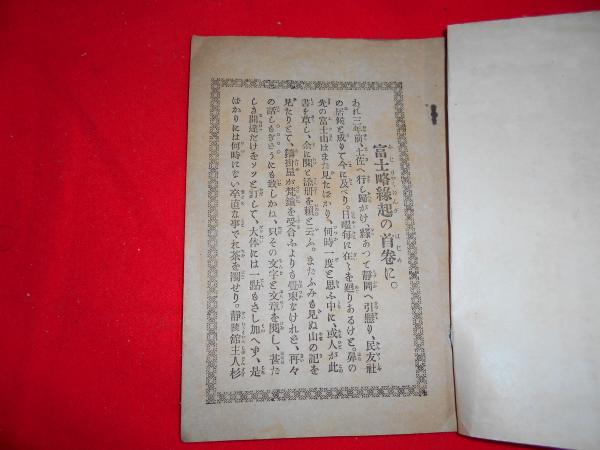 富士略縁起の首巻に。
あれ三年前、土佐へ行し歸がけ、縁あつて靜岡へ引懸り、民友社
の居候と成りて今に及べり。日曜毎に在々を廻りあるけど。鼻の
先の富士山はまだ見たばかり、何時一度と思ふ中に、或人が此
書を草し、余に閲と添刪を頼と云ふ。まだふみも見ぬ山の記を
見たりとて、鑄掛屋が梵鐘を受合ふよりも覺束なけれど、再々
の話しもだそうにも致しかね、只その文字と文章を閲し、甚た
しき間違だけをソツと打して、大体には一點もさし加へず、是
ばかりには何時にない卒直な事でお茶を濁せり。靜陵館主人杉